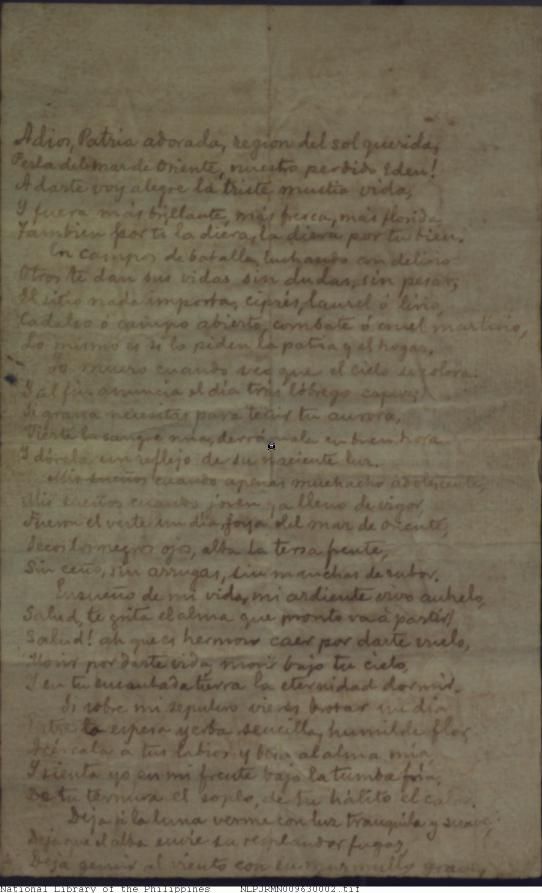 Adios, Patria adorada, region del sol querida,
Perla del mar de Oriente, nuestro perdido Eden!
A darte voy alegre la triste mustia vida,
Y fuera más brillante, más fresca, más florida,
Tambien por ti la diera, la diera por tu bien.
En campos de batalla, luchando con delirio
Otros te dan sus vidas sin dudas, sin pesar;
El sitio nada importa, ciprés, laurel ó lirio,
Cadalso ó campo abierto, combate ó cruel martirio,
Lo mismo es si lo piden la patria y el hogar.
Yo muero cuando veo que el cielo se colora
Y al fin anuncia el día tras lóbrego capuz;
Si grana necesitas para teñir tu aurora,
Vierte la sangre mia, derrámala en buen hora
Y dórela un reflejo de su naciente luz.
Mis sueños cuando apenas muchacho adolescente,
Mis sueños cuando joven ya lleno de vigor,
Fueron el verte un día, joya del mar de Oriente,
Secos los negros ojos, alta la tersa frente,
Sin ceño, sin arrugas, sin manchas de rubor.
Ensueño de mi vida, mi ardiente vivo anhelo,
Salud, te grita el alma que pronto va á partir!
Salud! ah que es hermoso caer por darte vuelo,
Morir por darte vida, morir bajo tu cielo,
Y en tu encantada tierra la eternidad dormir.
Si sobre mi sepulcro vieres brotar un día
Entre la espesa yerba sencilla, humilde flor,
Acércala á tus labios y besa al alma mía,
Y sienta yo en mi frente bajo la tumba fría,
De tu ternura el soplo, de tu hálito el calor.
Deja á la luna verme con luz tranquila y suave;
Deja que el alba envíe su resplandor fugaz,
Deja gemir al viento con su murmullo grave,
National Library of the Philippines NLPJRMN009630002.tif